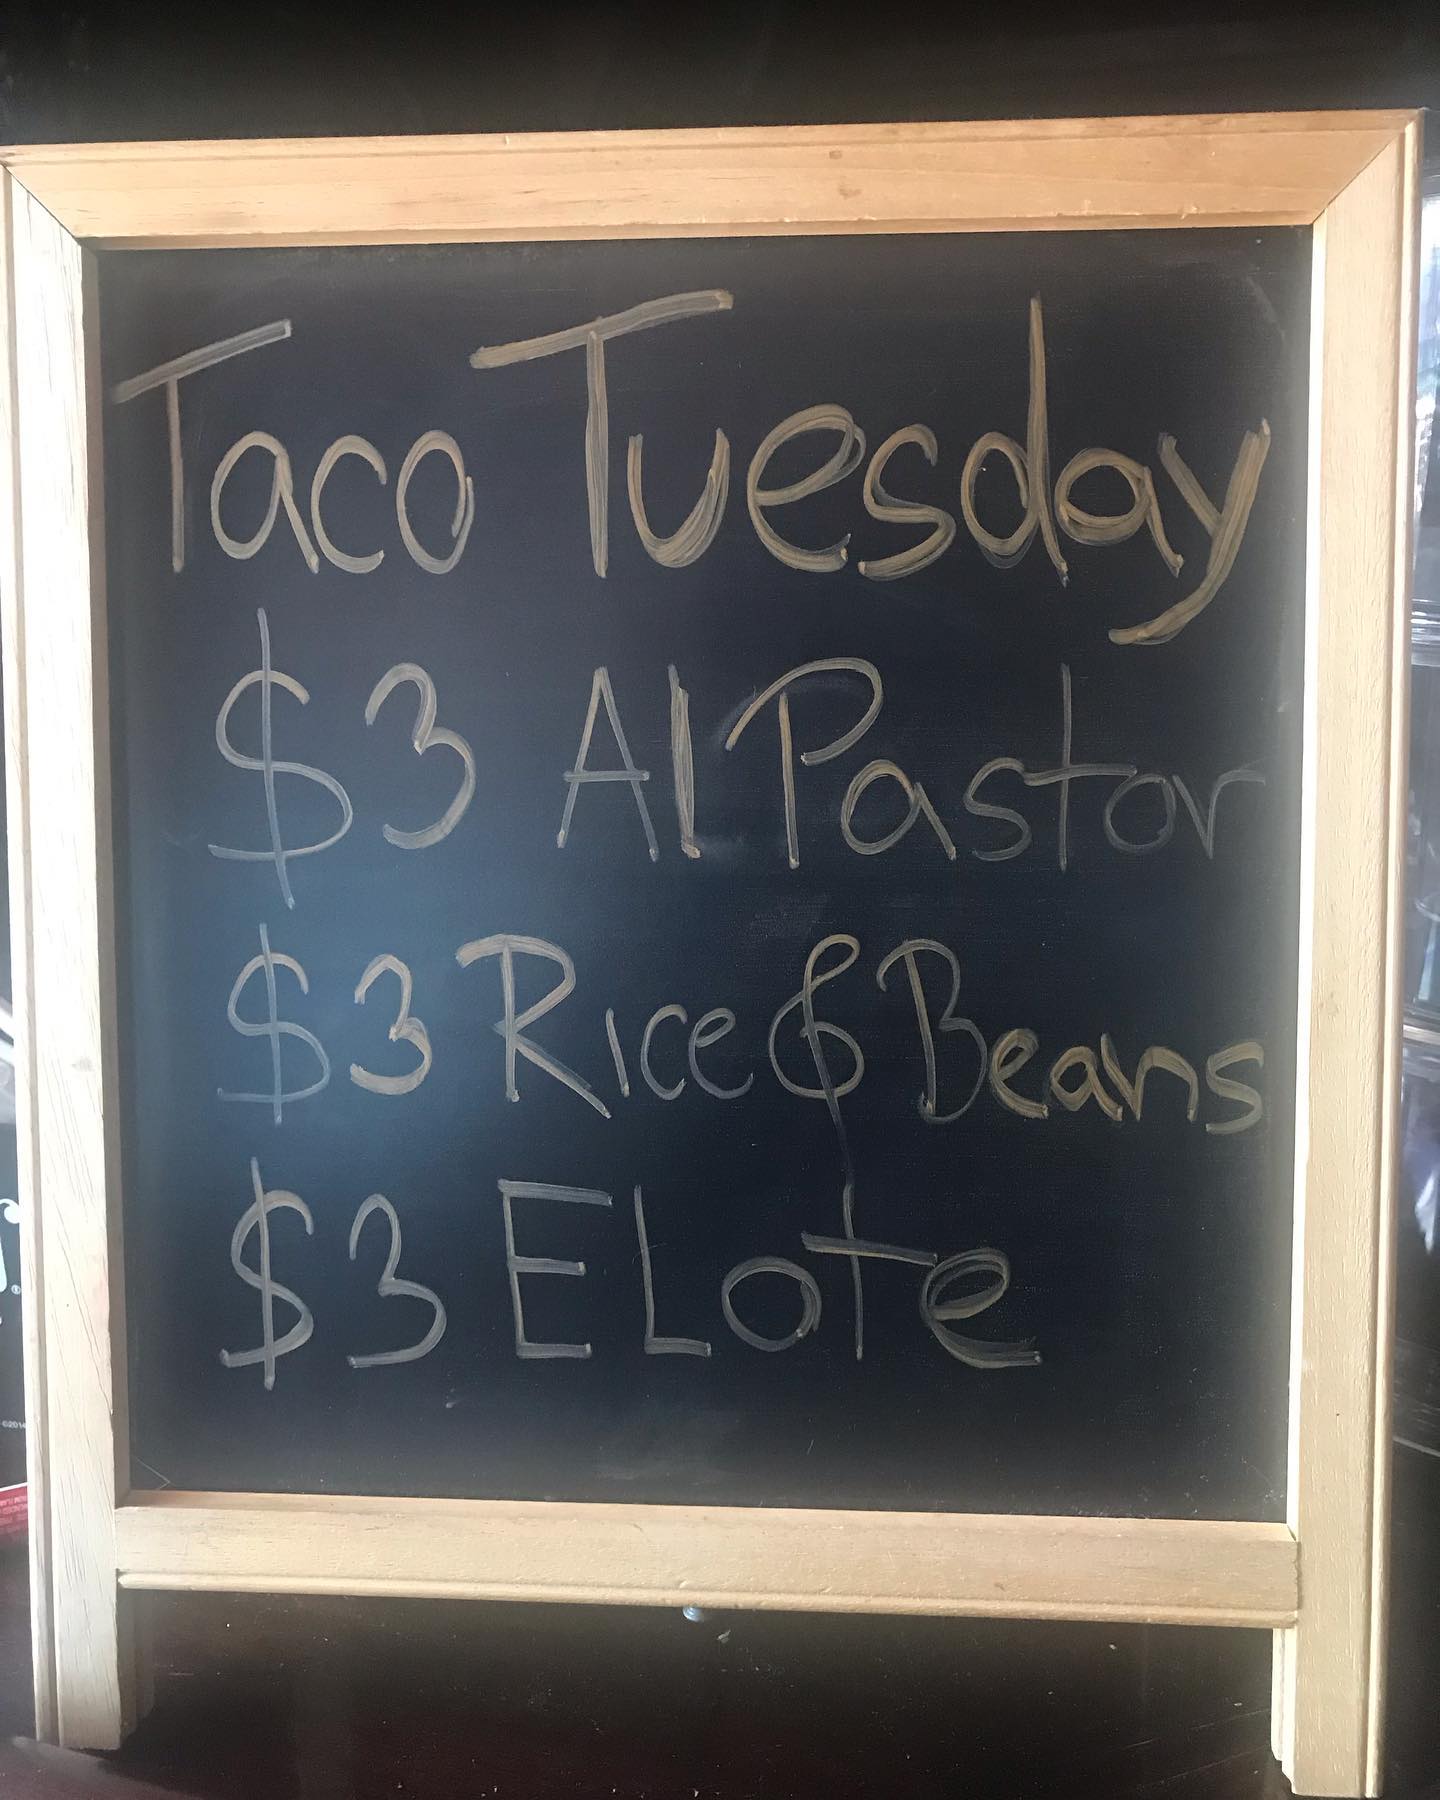 Taco Tuesday
$3 Al Pastor
$3 Rice & Beans
$3 ELote
©2014